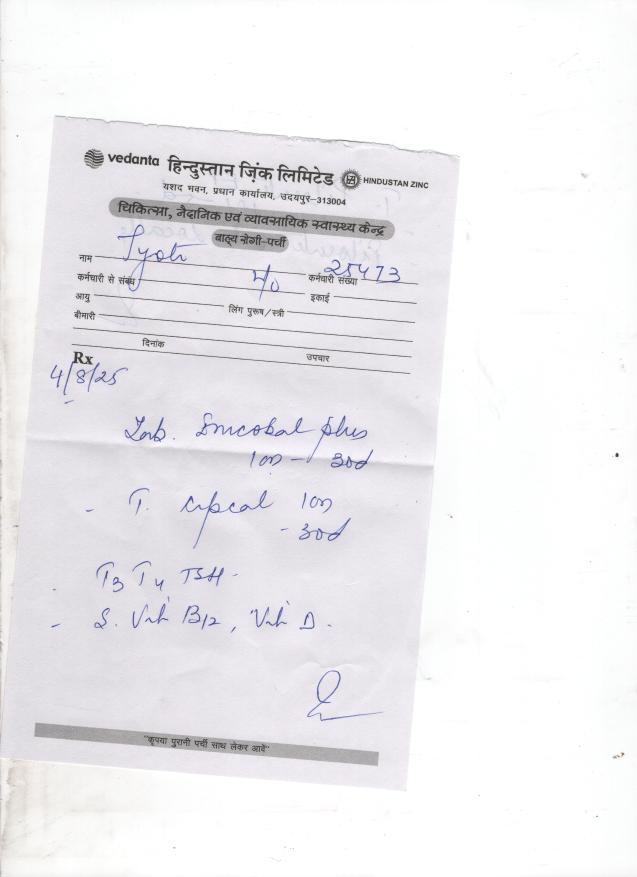 vedanta हिन्दुस्तान ज़िंक लिमिटेड HINDUSTAN ZINC
यशद भवन, प्रधान कार्यालय, उदयपुर–313004
चिकित्सा, नैदानिक एवं व्यावसायिक स्वास्थ्य केन्द्र
बाह्य रोगी-पर्ची
नाम Jyoti
कर्मचारी से संबंध कर्मचारी संख्या 25473
आयु लिंग पुरूष/स्त्री इकाई
बीमारी
दिनांक उपचार
Rx
4/8/25
Tab. plus
1on – 30d
- T. cipcal 1on
- 30d
T3 T4 TSH -
- S. Vit B12, Vit D.
"कृपया पुरानी पर्ची साथ लेकर आवें"